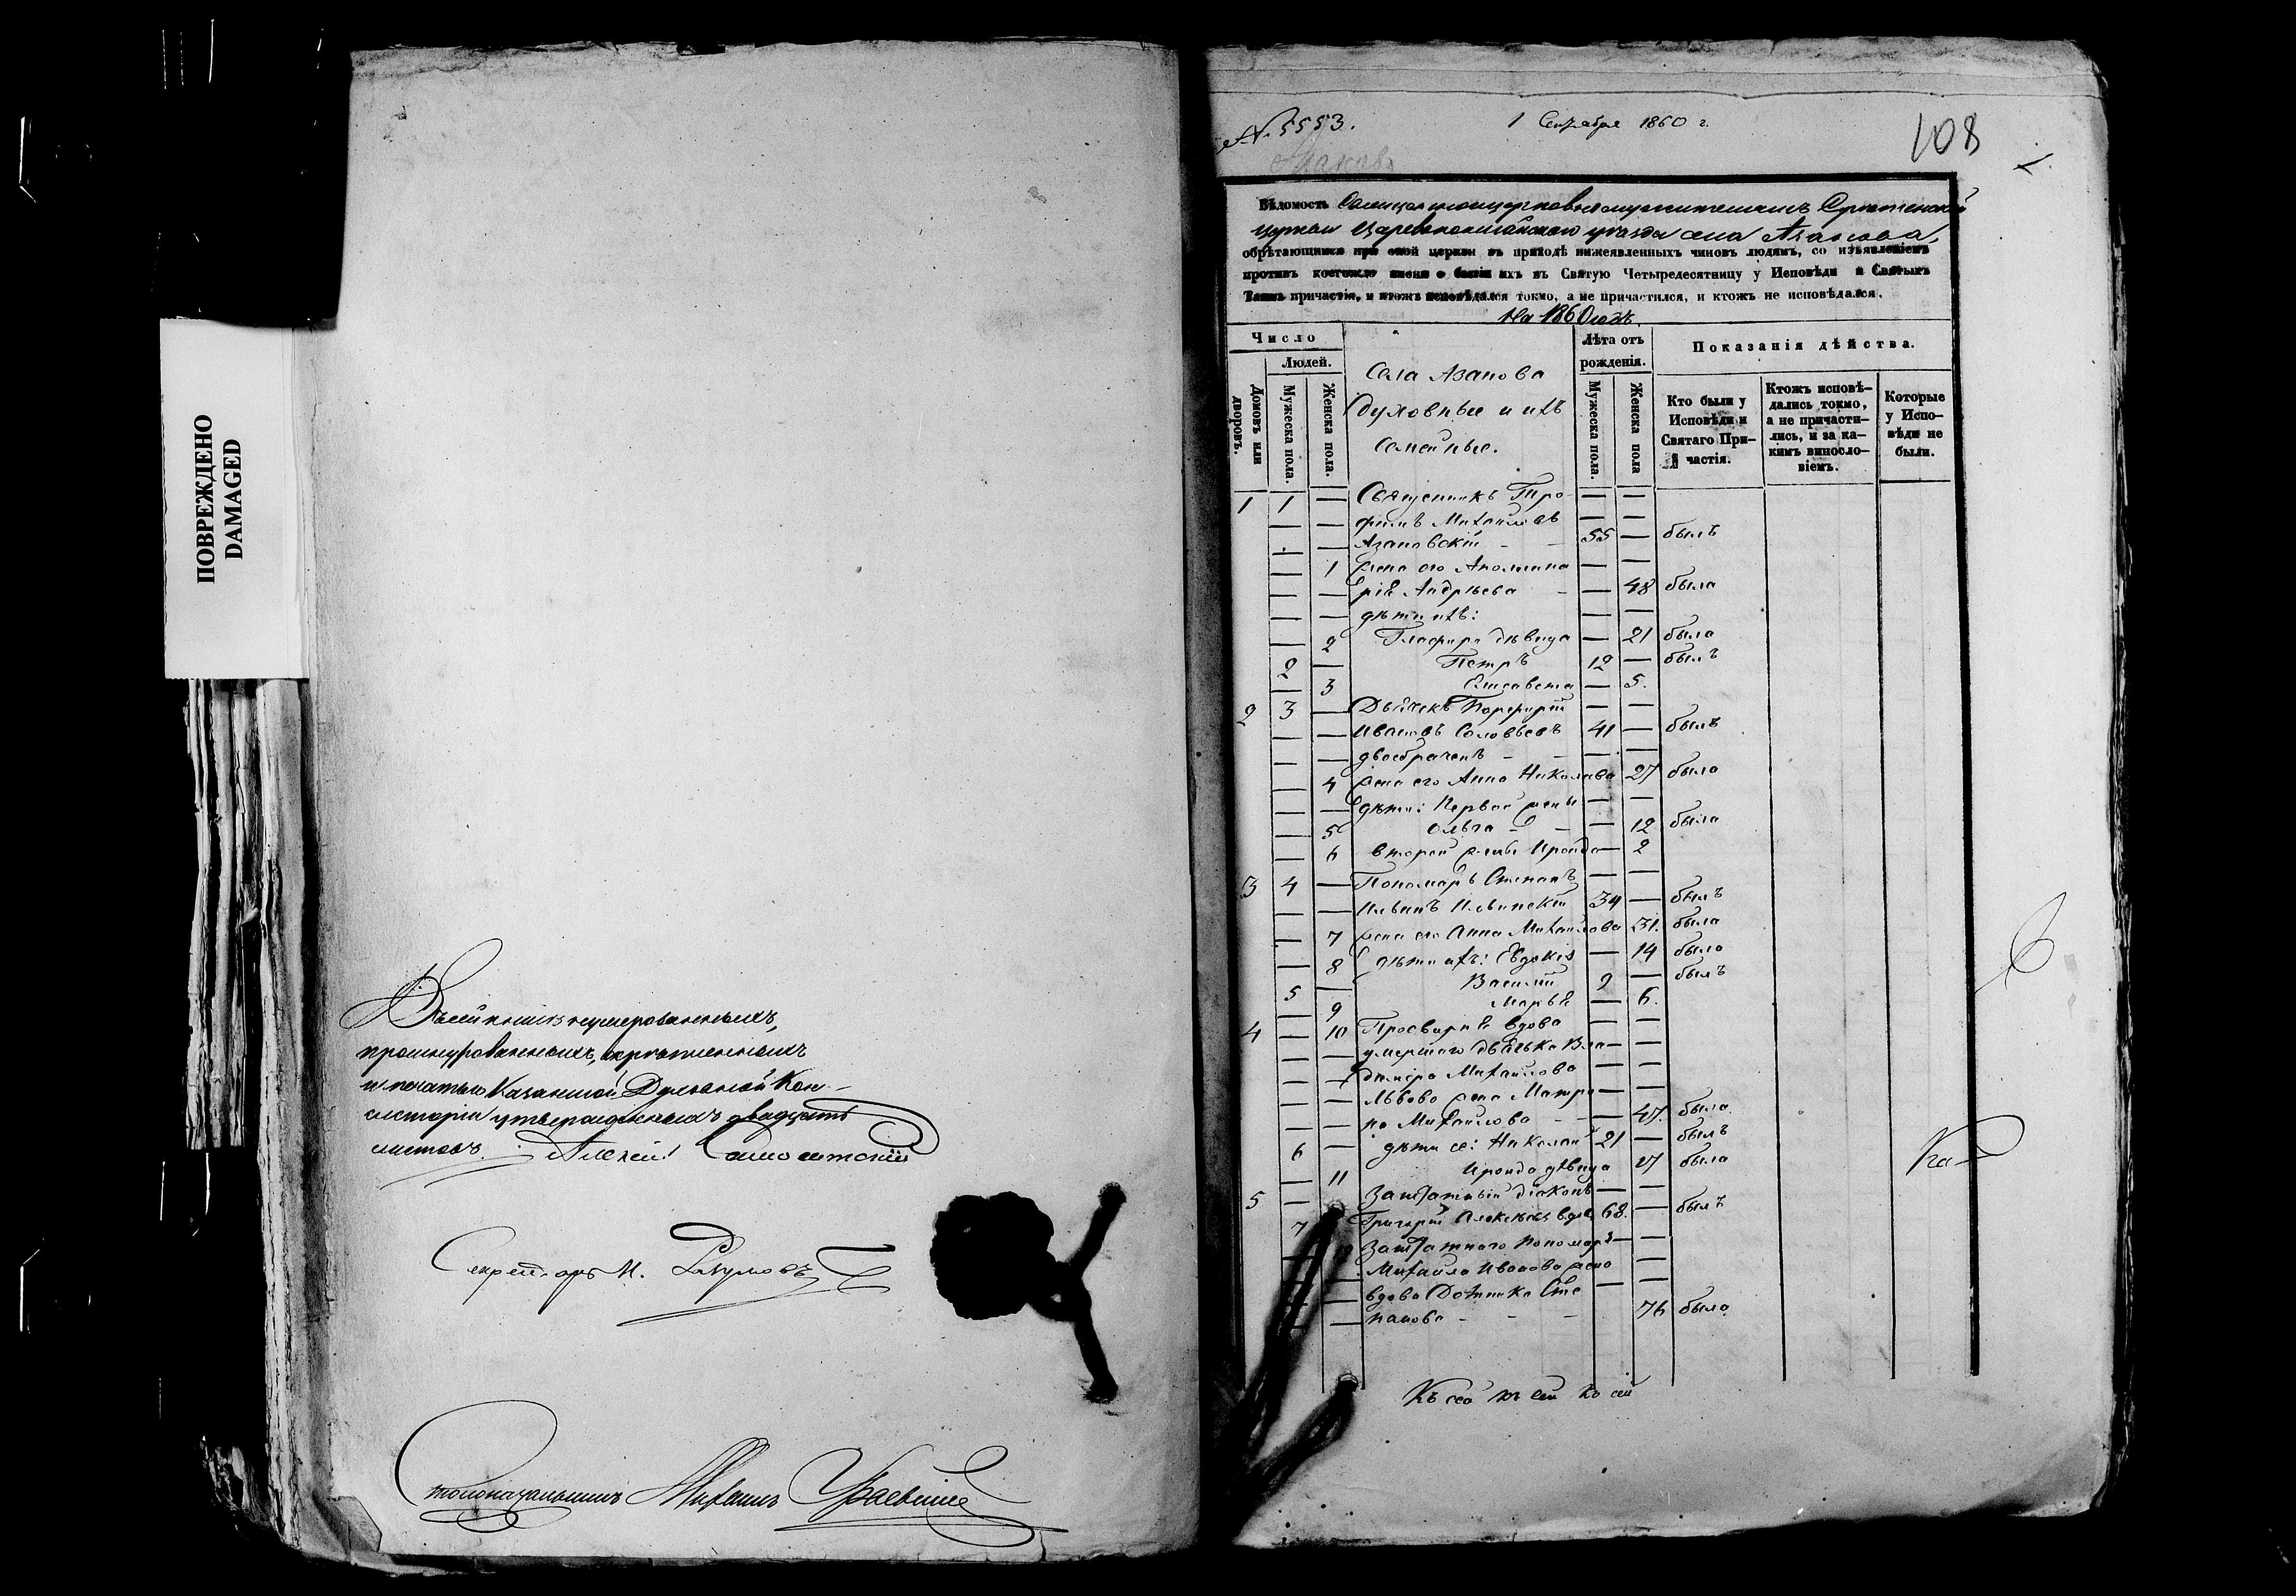 ПОВРЕЖДЕНО
DAMAGED
Въ сей книгѣ нумерованныхъ,
прошнурованныхъ, скрѣпленныхъ
и печатью Казанской Духовной Кон-
систоріи утвержденныхъ двадцать
листовъ. Алексѣй
Секретарь И.
Столоначальникъ Михаилъ
№ 5553. 1 Сентября 1860 г.
108
Вѣдомость Срѣтенской
церкви Царевококшайскаго уѣзда села Азанова,
обрѣтающимся при оной церкви въ приходѣ нижеявленныхъ чиновъ людямъ, со изъявленіемъ
противъ коегождо имени о бытіи ихъ въ Святую Четыредесятницу у Исповѣди и Святыхъ
Таинъ причастія, и ктожъ исповѣдался токмо, а не причастился, и ктожъ не исповѣдался.
На 1860 годъ.
Число
Людей.
Домовъ или дворовъ.
Мужеска пола.
Женска пола.
Села Азанова
духовные и ихъ
семейные.
Лѣта отъ
рожденія.
Мужеска пола.
Женска пола
Показанія дѣйства.
Кто были у
Исповѣди и
Святаго При-
частія.
Ктожъ исповѣ-
дались токмо,
а не причасти-
лись, и за ка-
кимъ виносло-
віемъ.
Которые
у Испо-
вѣди не
были.
1 1 — Священникъ Тро- — —
— — фимъ Михайловъ — —
— — Азановскій - - 55 — былъ
— 1 жена его Аполлина — —
— — рія Андрѣева - — 48 была
— — дѣти ихъ: — —
— 2 Глафира дѣвица — 21 была
2 — Петръ 12 — былъ
— 3 Елисавета — 5.
2 3 — Дьячекъ Порфирій — —
— — Ивановъ Соловьевъ 41 — былъ
— — двоебраченъ - - — —
— 4 жена его Анна Николаева 27 была
— — дѣти: Первой жены — —
— 5 Ольга - - — 12 была
— 6 второй жены Ираида — 2
3 4 — Пономарь Степанъ — —
— — Ильинъ Ильинскій 34 — былъ
— 7 жена его Анна Михайлова 31. была
— 8 дѣти ихъ: Евдокія — 14 была
5 — Василій 9 — былъ
9 Марья — 6.
4 — 10 Просвирня вдова — —
— — умершаго дьячька Вла- — —
— — диміра Михайлова — —
— — Львова жена Матре- — —
— — на Михайлова - — 47. была
6 — дѣти ее: Николай 21 — былъ
— 11 Ираида дѣвица 17 была
5 — Заштатный діаконъ — —
7 Григорій Алексѣевъ вдов. 68. — былъ
— Заштатнаго пономаря — —
— Михайла Иванова жена — —
— вдова Домника Сте- — —
— панова - - - 76 была.
Къ сей къ сей къ сей